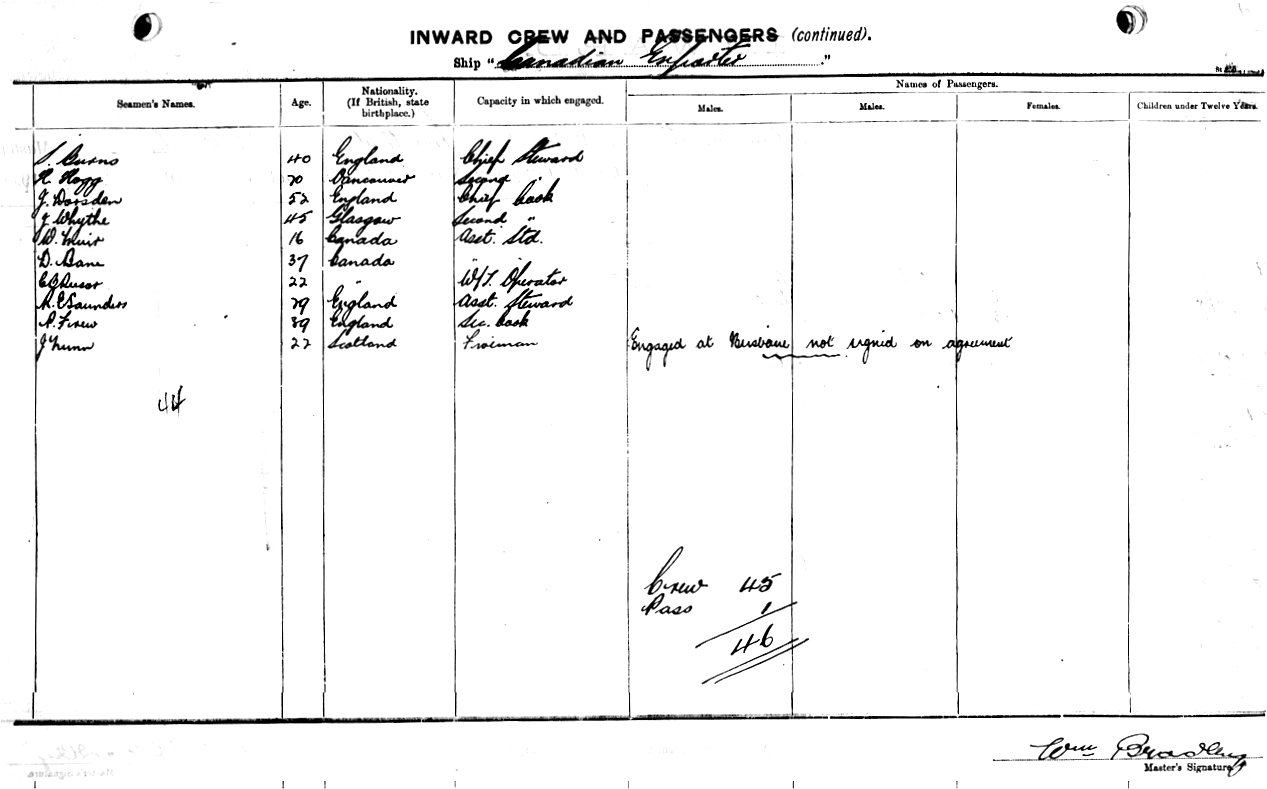 INWARD CREW AND PASSENGERS (continued).
Ship "Canadian Exporter."
Seamen's Names. Age. Nationality. (If British, state birthplace.) Capacity in which engaged. Names of Passengers.
Males. Males. Females. Children under Twelve Years.
S. Burns 40 England Chief Steward
R. Hogg 20 Vancouver Second "
J. Dorsden 52 England Chief Cook
J Whythe 45 Glasgow Second "
W. Muir 16 Canada Asst. Std.
D. Bane 37 Canada " "
22 " W/T. Operator
A. E Saunders 29 England Asst. Steward
A. Frew 39 England Sec. Cook
J Nunn 22 Scotland Fireman Engaged at Brisbane not signed on agreement
44
Crew 45
Pass 1
46
Wm Bradley
Master's Signature